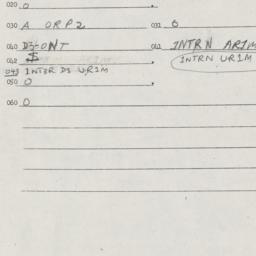 020 0
030 A ORP2 031 0
040 D3-ONT 041 INTRN AR1M
042 $ INTRN UR1M
043 INTER DS UR1M
050 0
060 0